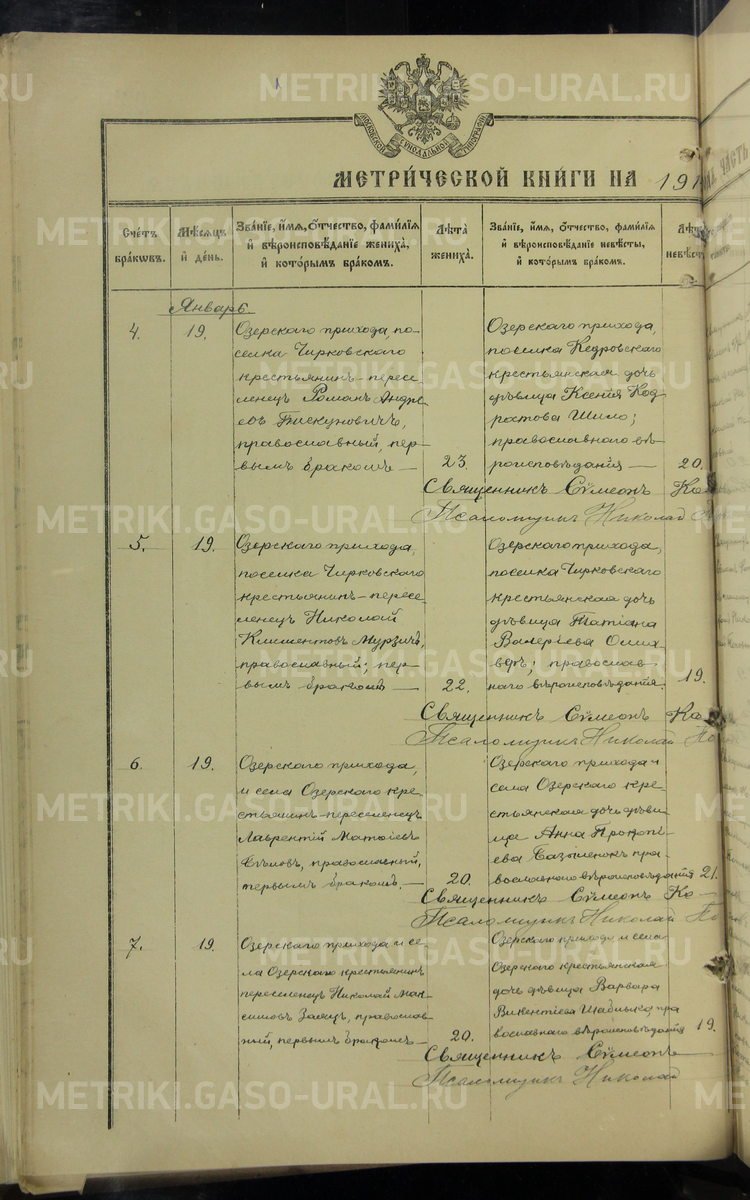 МЕТРИ́ЧЕСКОЙ КНИ́ГИ НА 191
Сче́тъ бра́кωвъ.
Мѣ́сяцъ и҆ де́нь.
Зва́нїе, и҆́мя, ѻ҆́тчество, фами́лїя и҆ вѣроисповѣ́данїе жениха̀, и҆ кото́рымъ бра́комъ.
Лѣта̀ жениха̀.
Зва́нїе, и҆́мя, ѻ҆́тчество, фами́лїя и҆ вѣроисповѣ́данїе невѣ́сты, и҆ кото́рымъ бра́комъ.
Январь.
4.
19.
Озерскаго прихода, по-
селка Чирковскаго
крестьянинъ-пересе
ленецъ Романъ Андре
евъ Пискуновичъ,
православный, пер-
вымъ бракомъ —
23.
Озерскаго прихода,
поселка Кедровскаго
крестьянская дочь
дѣвица Ксенія Код
ратова Шило;
православнаго вѣ-
роисповѣданія —
20.
Священникъ Сѵмеонъ Ко
Псаломщикъ Николай
5.
19.
Озерскаго прихода,
поселка Чирковскаго
крестьянинъ-пересе-
ленецъ Николай
Климентовъ Мурзичъ,
православный; пер-
вымъ бракомъ —
22.
Озерскаго прихода,
поселка Чирковскаго
крестьянская дочь
дѣвица Татіана
Валеріева
православ-
наго вѣроисповѣданія.
19.
Священникъ Сѵмеонъ Ко
Псаломщикъ Николай
6.
19.
Озерскаго прихода,
и села Озерскаго кре-
стьянинъ-переселенецъ
Лаврентій Матѳіевъ
православный,
первымъ бракомъ. —
20.
Озерскаго прихода и
села Озерскаго кре-
стьянская дочь дѣви-
ца Анна Прокопі-
ева пра-
вославнаго вѣроисповѣданія
21.
Священникъ Сѵмеонъ Ко
Псаломщикъ Николай
7.
19.
Озерскаго прихода и се-
ла Озерскаго крестьянинъ
переселенецъ Николай Мак-
симовъ Заяцъ, православ-
ный, первымъ бракомъ —
20.
Озерскаго прихода и села
Озерскаго крестьянская
дочь дѣвица Варвара
Викентіева пра
вославнаго вѣроисповѣданія
19.
Священникъ Сѵмеонъ
Псаломщикъ Николай
METRIKI.GASO-URAL.RU